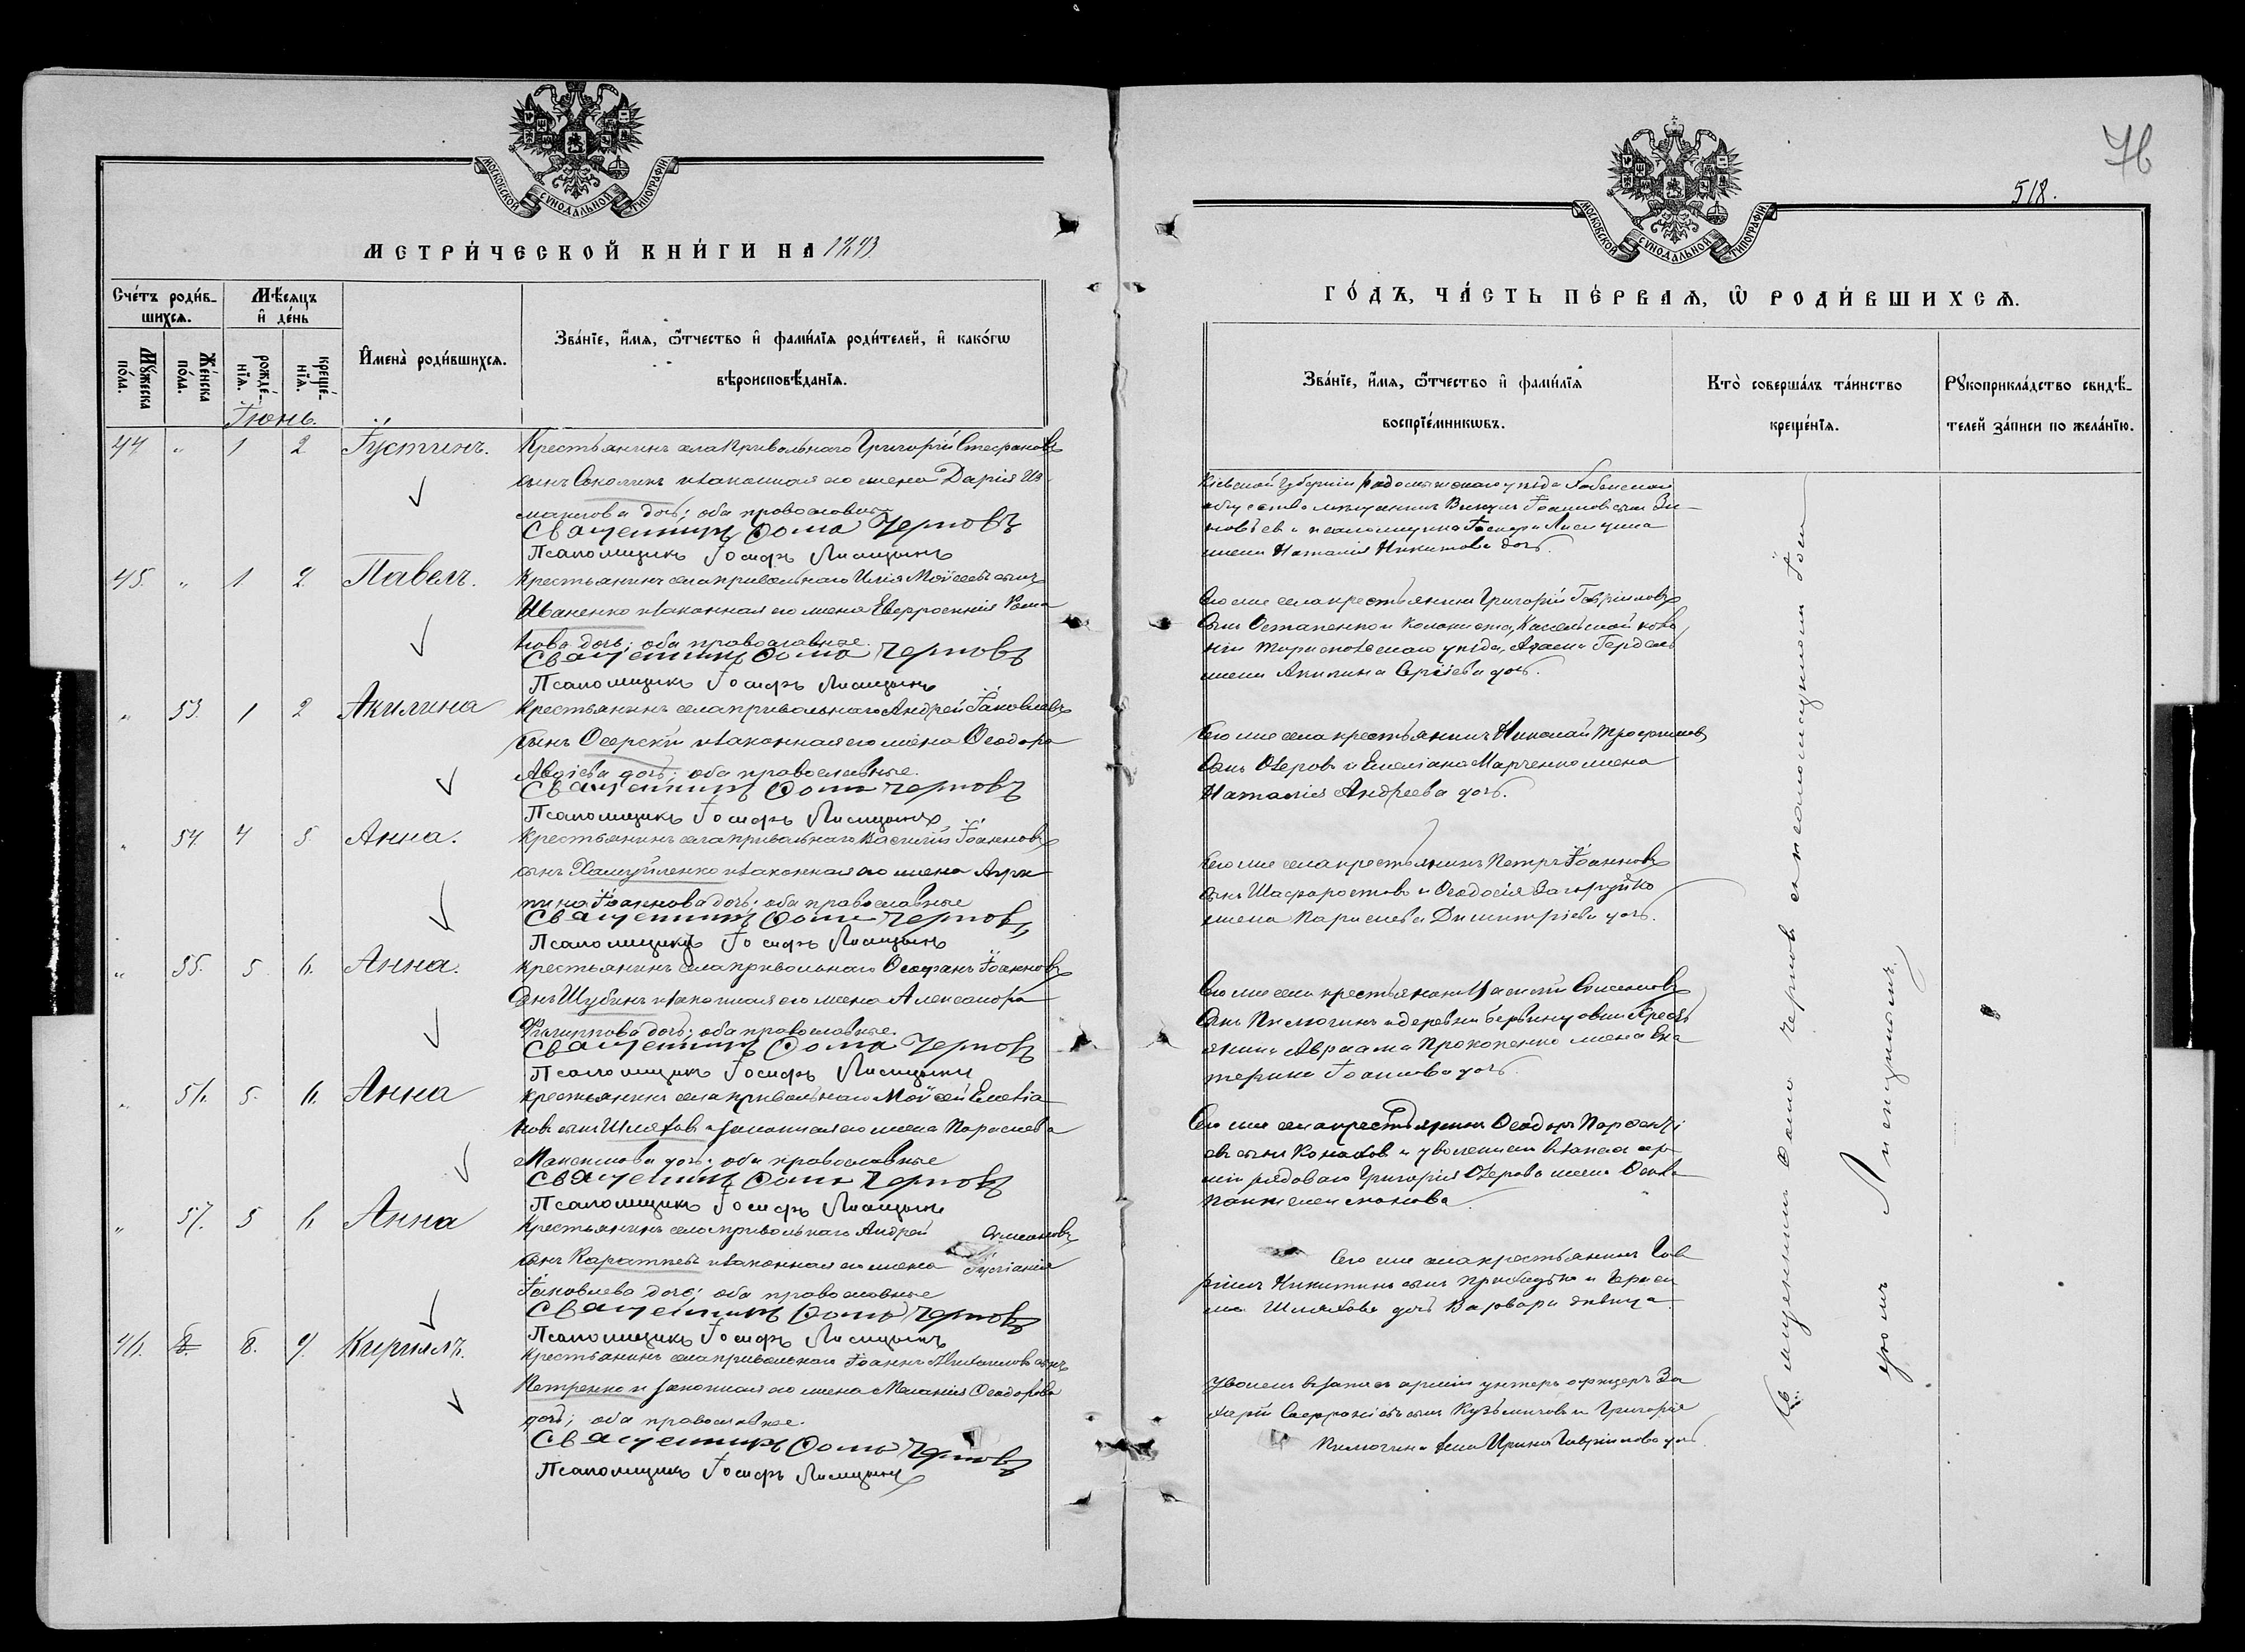 МОСКОВСКОЙ СѴНОДАЛЬНОЙ ТИПОГРАФІИ
МЕТРИ́ЧЕСКОЙ КНИ́ГИ НА 1893
Сче́тъ роди́вшихсѧ.
Мѣ́сѧцъ и҆ де́нь
Мꙋ́жеска по́ла.
Же́нска по́ла.
рожде́нїѧ.
креще́нїѧ.
И҆мена̀ роди́вшихсѧ.
Зва́нїе, и҆́мѧ, ѻ҆́тчество и҆ фами́лїѧ роди́телей, и҆ како́гѡ
вѣроисповѣ́данїѧ.
Іюнь.
44 " 1 2 Іустинъ. Крестьянинъ села Привольнаго Григорій Стефановъ
сынъ Соколикъ и законная его жена Дарія
дочь; оба православные
Священникъ Ѳома Черновъ
Псаломщикъ Іосифъ Лисицынъ
45 " 1 2 Павелъ. Крестьянинъ села Привольнаго Илія Моѵсеевъ сынъ
Иваненко и законная его жена Евфросинія Рома
нова дочь; оба православные.
Священникъ Ѳома Черновъ
Псаломщикъ Іосифъ Лисицынъ
" 53 1 2 Акилина Крестьянинъ села Привольнаго Андрей Іаковлевъ
сынъ и законная его жена Ѳеодора
дочь; оба православные.
Священникъ Ѳома Черновъ
Псаломщикъ Іосифъ Лисицынъ
" 54 4 5 Анна. Крестьянинъ села Привольнаго Василій Іоанновъ
сынъ и законная его жена Агри
пина Іоаннова дочь; оба православные
Священникъ Ѳома Черновъ
Псаломщикъ Іосифъ Лисицынъ
" 55. 5 6. Анна. Крестьянинъ села Привольнаго Ѳеофанъ Іоанновъ
сынъ Шубинъ и законная его жена Александра
Филиппова дочь; оба православные.
Священникъ Ѳома Черновъ
Псаломщикъ Іосифъ Лисицынъ
" 56. 5. 6. Анна Крестьянинъ села Привольнаго Моѵсей Емеліа
новъ сынъ Шляховъ и законная его жена Параскева
Максимова дочь; оба православные
Священникъ Ѳома Черновъ
Псаломщикъ Іосифъ Лисицынъ
" 57. 5 6 Анна Крестьянинъ села Привольнаго Андрей Симеоновъ
сынъ и законная его жена Іуліанія
Іаковлева дочь; оба православные
Священникъ Ѳома Черновъ
Псаломщикъ Іосифъ Лисицынъ
46. 8. 9. Кириллъ. Крестьянинъ села Привольнаго Іоаннъ сынъ
Петренко и законная его жена Меланія Ѳеодорова
дочь; оба православные.
Священникъ Ѳома Черновъ
Псаломщикъ Іосифъ Лисицынъ
76
518.
МОСКОВСКОЙ СѴНОДАЛЬНОЙ ТИПОГРАФІИ
ГО́ДЪ, ЧА́СТЬ ПЕ́РВАѦ, Ѡ҆ РОДИ́ВШИХСѦ.
Зва́нїе, и҆́мѧ, ѻ҆́тчество и҆ фами́лїѧ
воспрїе́мникѡвъ.
Кто̀ соверша́лъ та́инство
креще́нїѧ.
Рꙋкоприкла́дство свидѣ́телей за́писи по жела́нїю.
Кіевской губерніи Радомысльскаго уѣзда
мѣщанинъ Викулъ Іоанновъ сынъ Зи
новьевъ и псаломщика Іосифа Лисицына
жена Наталія Никитова дочь.
Того же села крестьянинъ Григорій Гавріиловъ
сынъ Остапенко и колониста коло
ніи уѣзда,
жена Акилина Сергіева дочь.
Того же села крестьянинъ Николай Трофимовъ
сынъ Озеровъ и Емеліана Марченко жена
Наталія Андреева дочь.
Того же села крестьянинъ Петръ Іоанновъ
сынъ Шафоростовъ и Ѳеодосія Загоруйко
жена Параскева Димитріева дочь.
Того же села крестьянинъ Василій Симеоновъ
сынъ Пилюгинъ и деревни крестъ
янина Авраама Прокопенко жена Ека
терина Іоаннова дочь.
Того же села крестьянинъ Ѳеодоръ Парѳені
евъ сынъ и уволеннаго въ запасъ ар
міи рядоваго Григорія Озерова жена
Того же села крестьянинъ Гав
ріилъ Никитинъ сынъ и
Шляхова дочь Варвара дѣвица.
Уволен. въ запасъ арміи унтеръ офицеръ За
харій сынъ Кузьминовъ и Григорія
Пилюгина жена Ирина Гавріилова дочь.
Священникъ Ѳома Черновъ съ псаломщикомъ Іоси
фомъ Лисицынымъ.